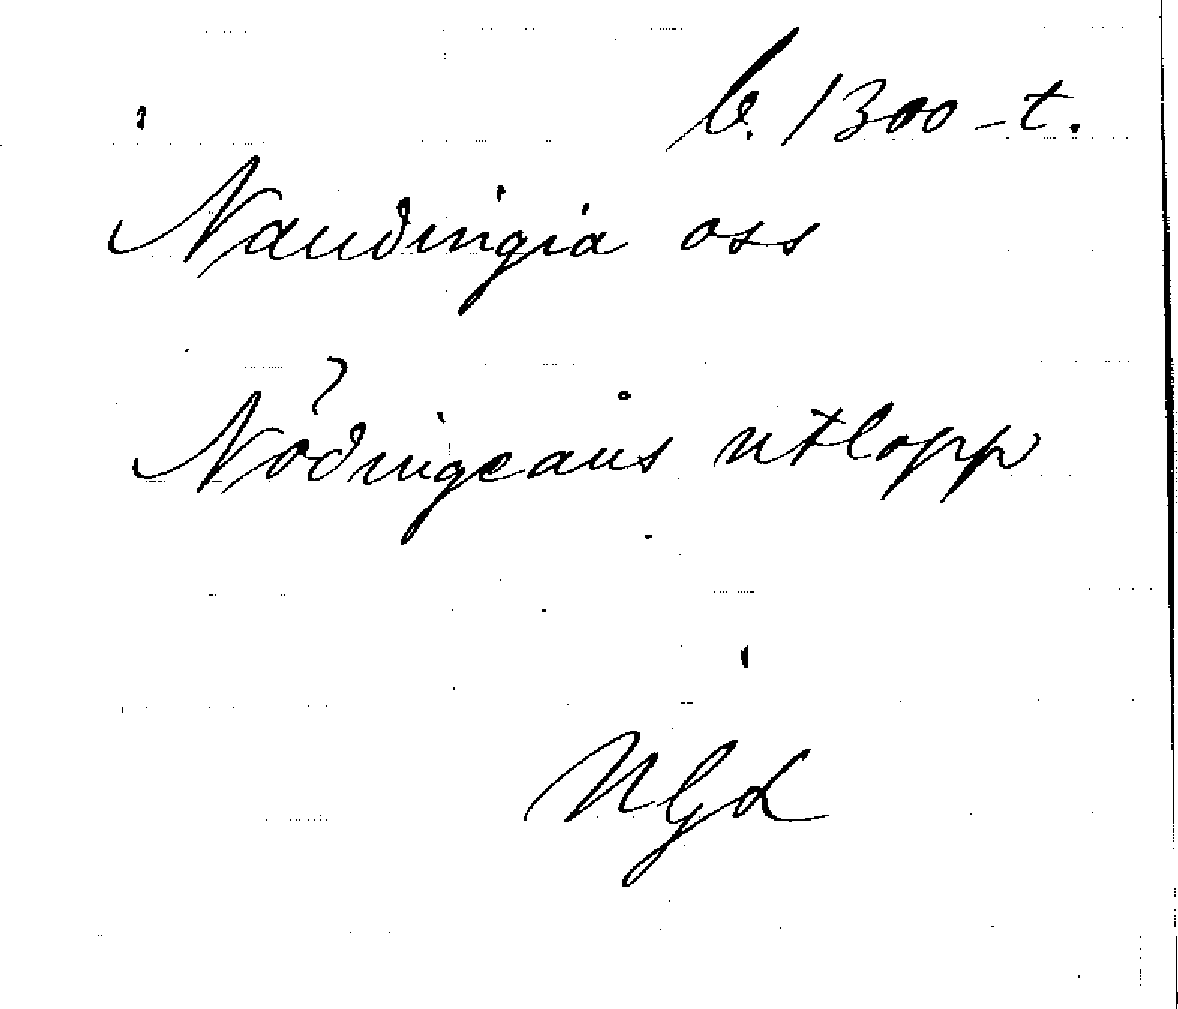 b. 1300-t.
Nauðingia oss
Nöðingeåns utlopp
NGd